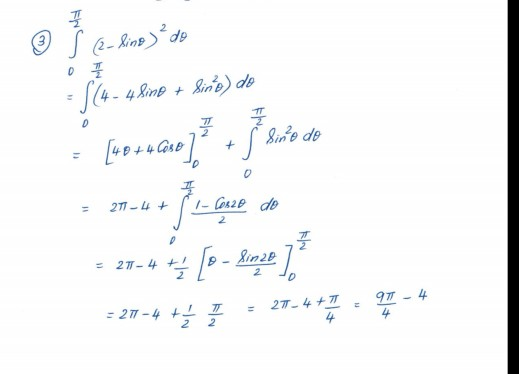 ③ ∫₀^{π/2} (2 - sinθ)² dθ
= ∫₀^{π/2} (4 - 4 sinθ + sin²θ) dθ
= [4θ + 4 Cosθ]₀^{π/2} + ∫₀^{π/2} sin²θ dθ
= 2π - 4 + ∫₀^{π/2} (1 - Cos2θ)/2 dθ
= 2π - 4 + 1/2 [θ - sin2θ/2]₀^{π/2}
= 2π - 4 + 1/2 π/2 = 2π - 4 + π/4 = 9π/4 - 4